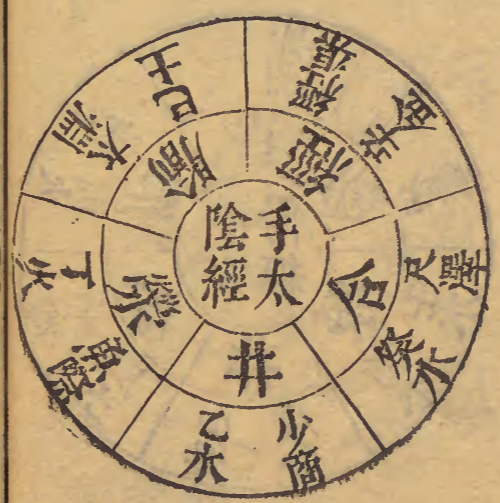 手太
陰經
井
少商
乙
滎
魚際
丁火
腧
太淵
己土
經
經渠
辛金
合
尺澤
癸